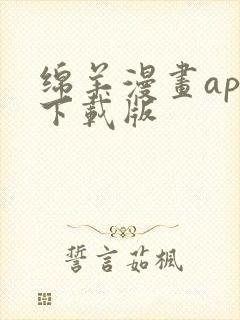 绵羊漫畫ap
下載版
誓言茹楓